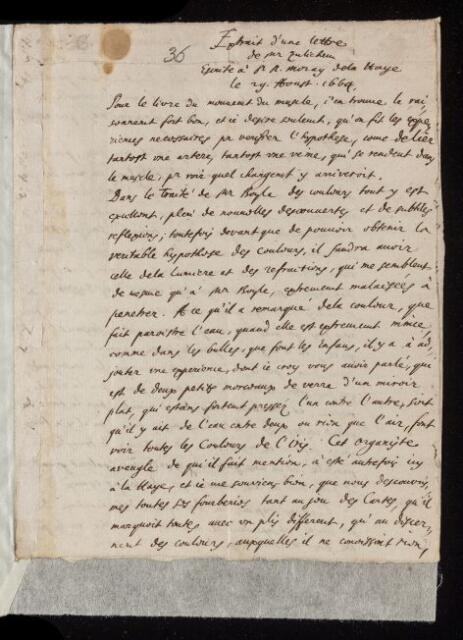 36
Extrait d'une lettre
de Mr Zulichem
Escrite à Sr R. Moray de la Haye
le 29. Aoust. 1664.
Pour le livre du mouvent du muscle, j'en trouve le rai-
sonnement fort bon, et ie desire seulemt, qu'on fit les expe-
riences necessaires pr verifier l'hypothese, come de lier
tantost vne artere, tantost vne veine, qui se rendent dans
le muscle, pr voir quel changemt y arriveroit.
Dans le Traité de Mr Boyle des couleurs tout y est
excellent, plein de nouvelles descouvertes et de subtiles
reflexions; toutefois devant que de pouvoir obtenir la
veritable hypothese des couleurs, il faudra avoir
celle de la lumiere et des refractions, qui me semblent
de mesme qu'à Mr Boyle, extrement malaisées à
penetrer. A ce qu'il a remarqué de la couleur, que
fait paroistre l'eau, quand elle est extrement mince,
comme dans les bulles, que font les enfans, il y a à ad-
jouter vne experience, dont ie croy vous avoir parlé, qui
est de deux petits morceaux de verre d'un miroir
plat, qui estans fortemt pressez l'un contre l'autre, soit
qu'il y ait de l'eau entre deux ou rien que l'air, font
voir toutes les Couleurs de l'iris. Cet Organiste
aveugle de qui il fait mention, à esté autrefois icy
à la Haye, et ie me souviens bien, que nous descouvris-
mes toutes ses fourberies tant au jeu des Cartes, qu'il
marquoit toutes avec un plis different, qu'au discer-
nemt des couleurs, auxquelles il ne conoissoit rien,